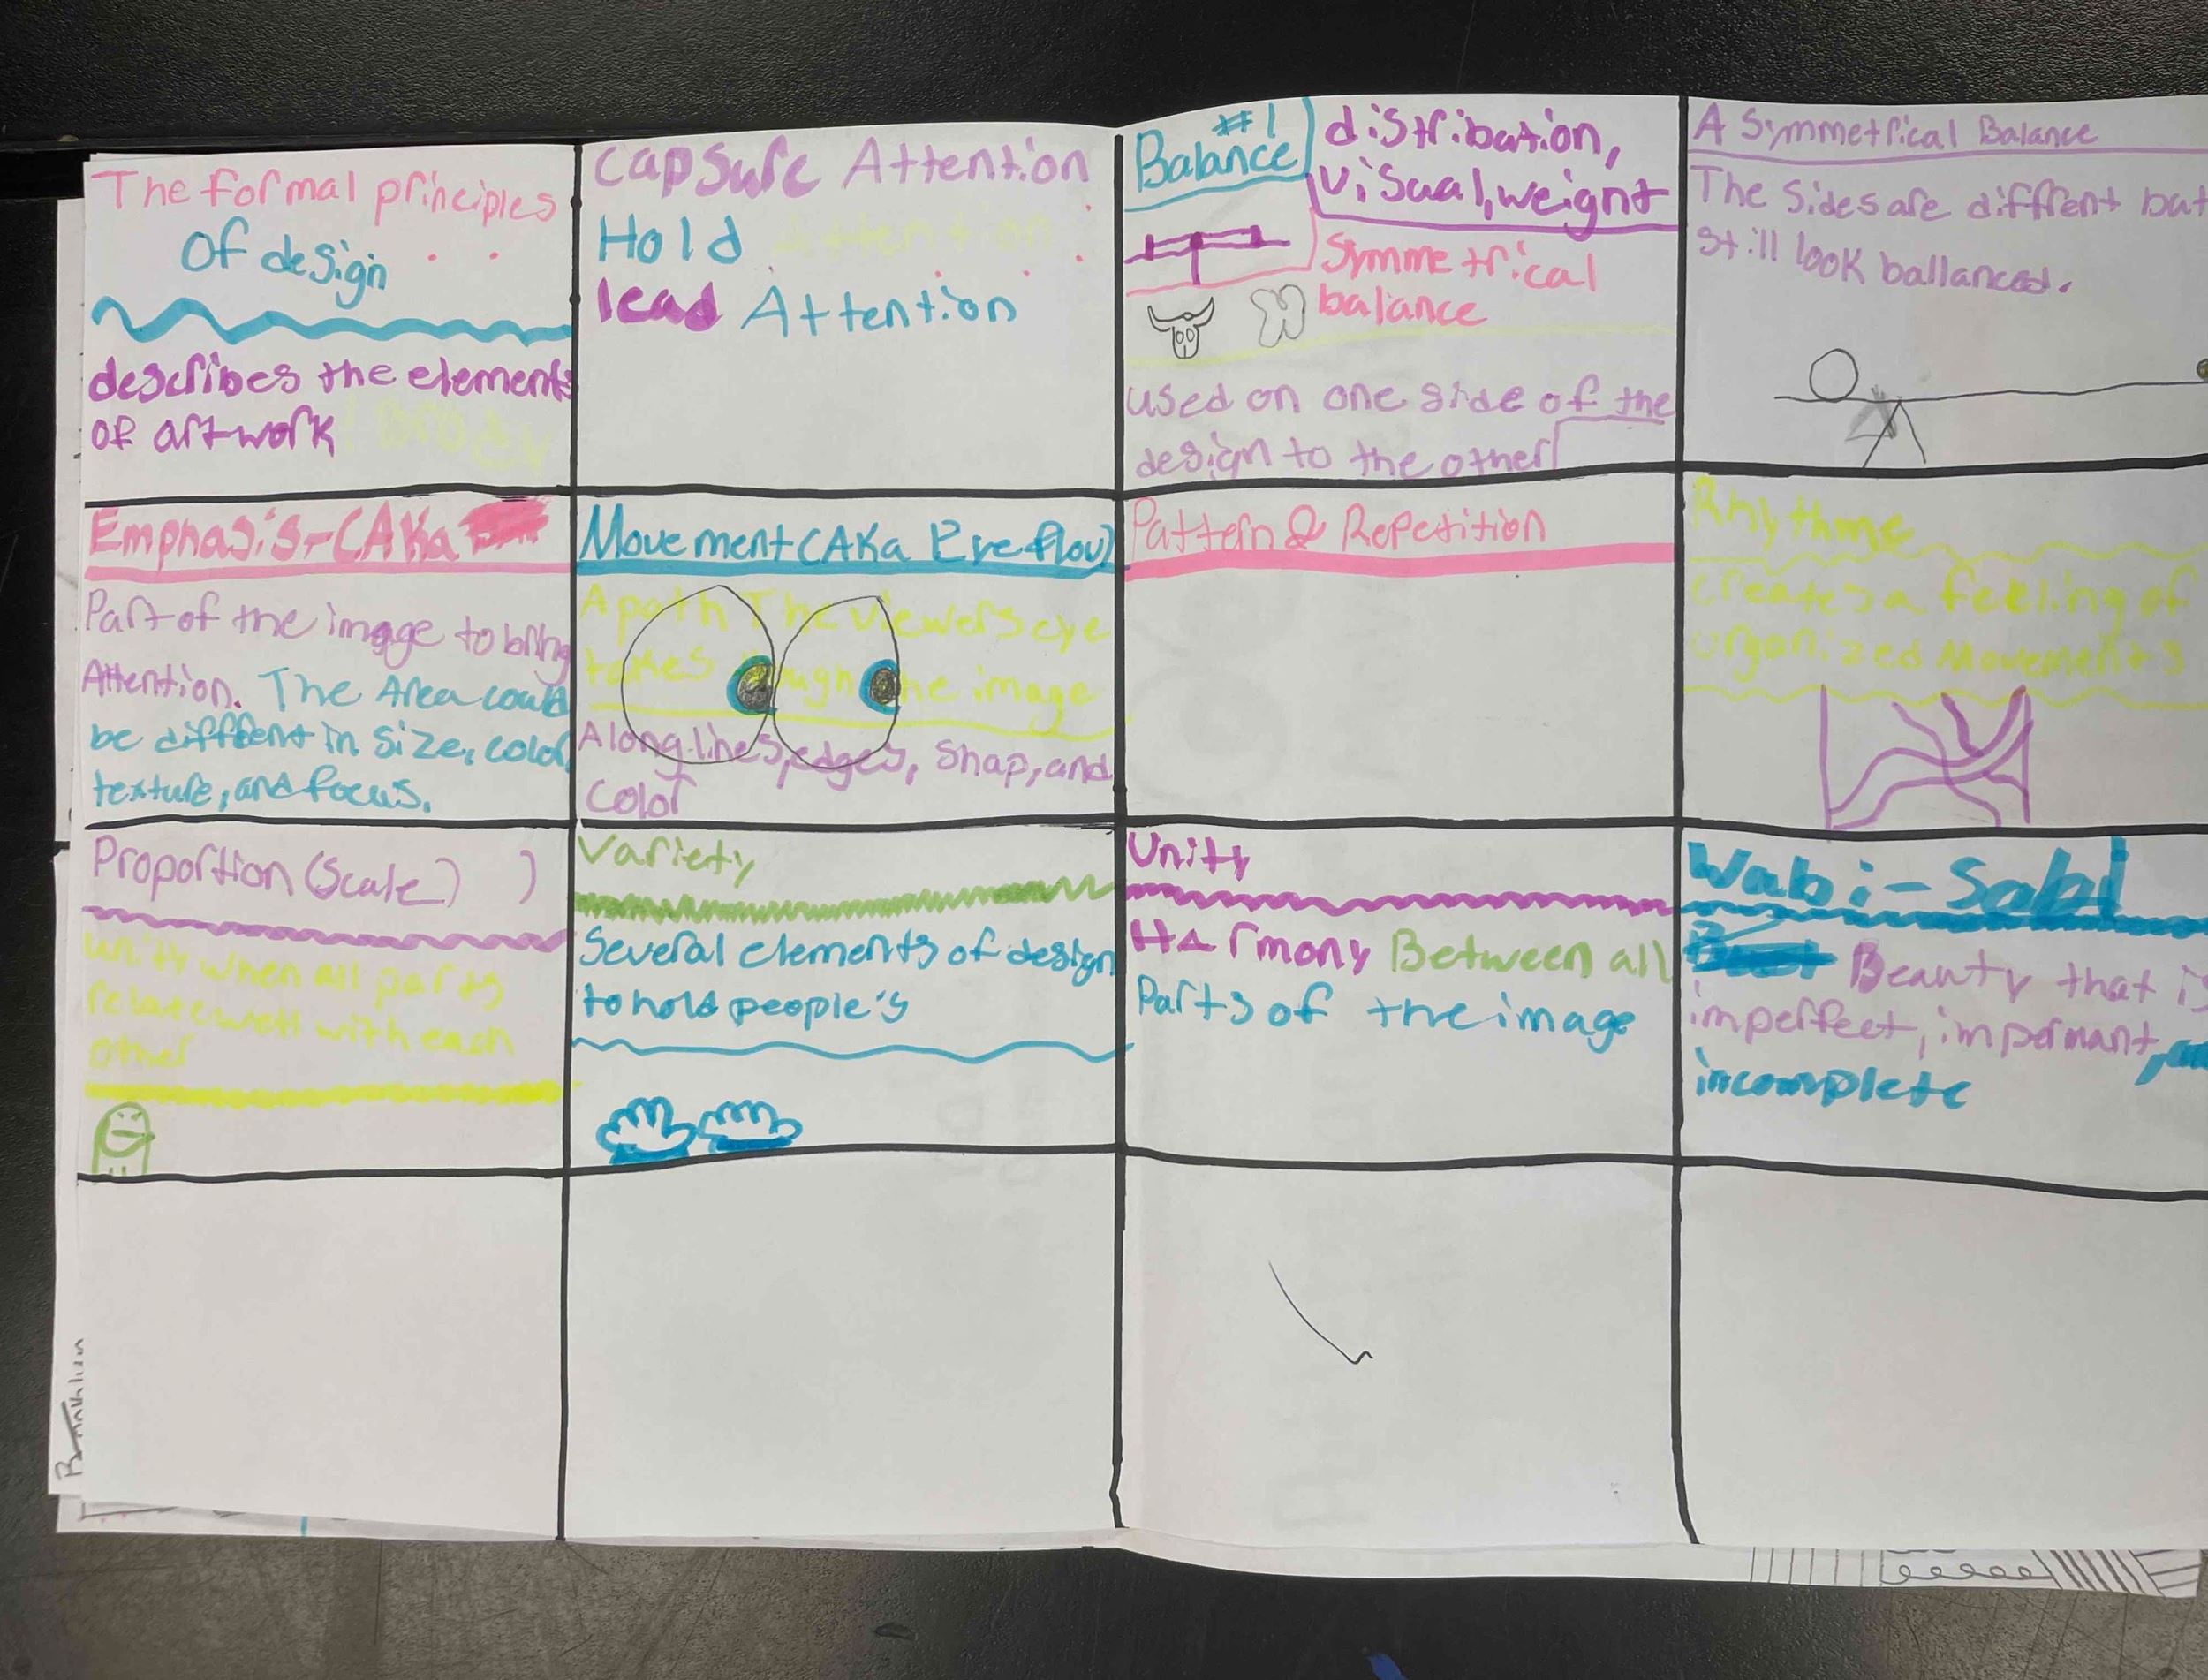 The formal principles
of design
describes the elements
of artwork
Capsure Attention
Hold Attention
lead Attention
#1
Balance
distribution,
visual, weignt
Symmetrical
balance
used on one side of the
design to the other
A Symmetrical Balance
The sides are diffrent but
still look ballanced.
Emphasis-(AKa
Part of the image to bring
Attention. The Area could
be diffrent in size, color,
texture, and focus.
Movement (AKa Eye flow)
A path The viewers eye
takes the image
Along lines, edges, shap, and
color
Pattern & Repetition
Rhythme
creates a feeling of
organized Movements
Proportion (Scale) )
unity when all parts
relate well with each
other
Variety
Several elements of design
to hold people's
Unity
HArmony Between all
Parts of the image
Wabi-Sabi
Beauty that is
imperfect, impermant,
incomplete